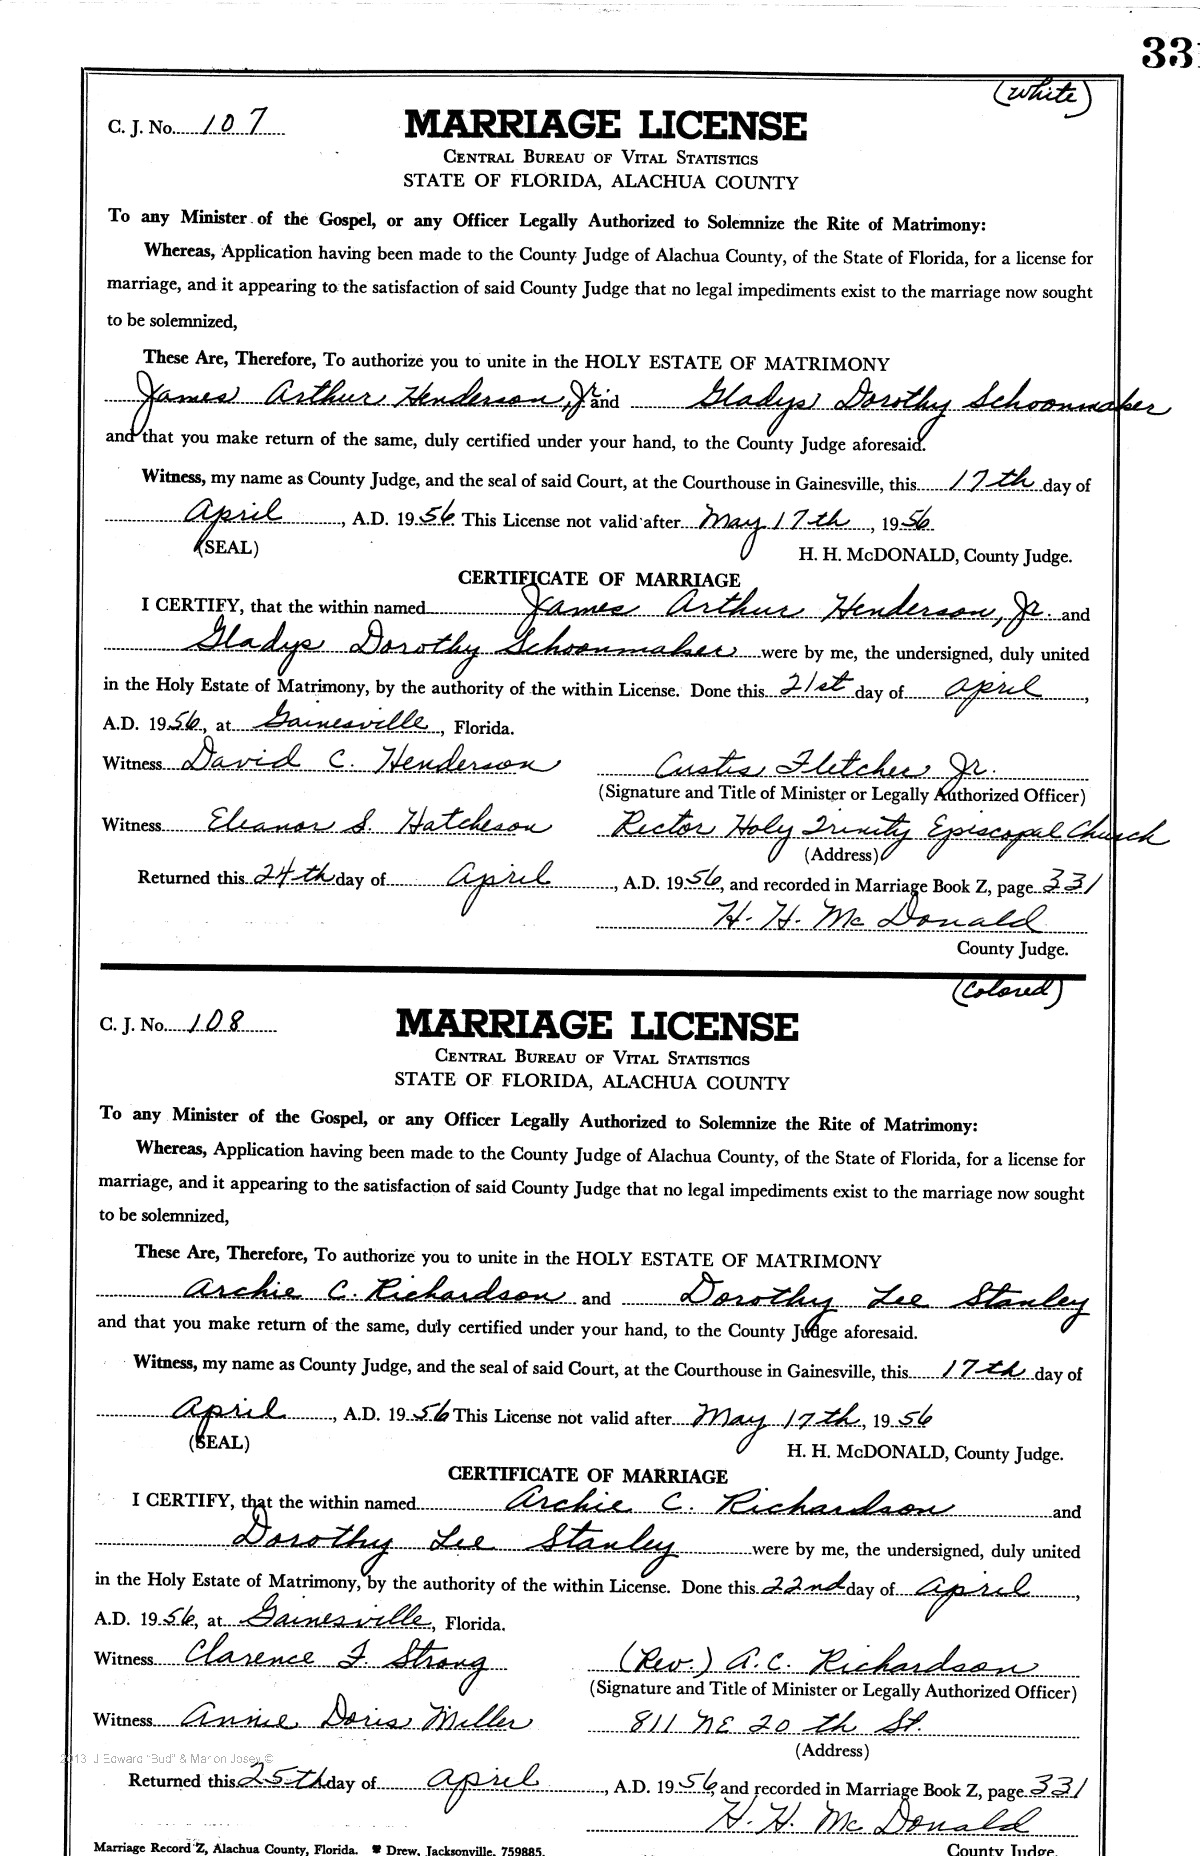 331
(White)
C. J. No. 107
MARRIAGE LICENSE
CENTRAL BUREAU OF VITAL STATISTICS
STATE OF FLORIDA, ALACHUA COUNTY
To any Minister of the Gospel, or any Officer Legally Authorized to Solemnize the Rite of Matrimony:
Whereas, Application having been made to the County Judge of Alachua County, of the State of Florida, for a license for
marriage, and it appearing to the satisfaction of said County Judge that no legal impediments exist to the marriage now sought
to be solemnized,
These Are, Therefore, To authorize you to unite in the HOLY ESTATE OF MATRIMONY
James Arthur Henderson, Jr. and Gladys Dorothy Schoonmaker
and that you make return of the same, duly certified under your hand, to the County Judge aforesaid.
Witness, my name as County Judge, and the seal of said Court, at the Courthouse in Gainesville, this 17th day of
April, A.D. 1956. This License not valid after May 17th, 1956
(SEAL) H. H. McDONALD, County Judge.
CERTIFICATE OF MARRIAGE
I CERTIFY, that the within named James Arthur Henderson, Jr. and
Gladys Dorothy Schoonmaker were by me, the undersigned, duly united
in the Holy Estate of Matrimony, by the authority of the within License. Done this 21st day of April,
A.D. 1956, at Gainesville, Florida.
Witness David C. Henderson Custis Fletcher Jr.
(Signature and Title of Minister or Legally Authorized Officer)
Witness Eleanor S. Hatcheson Rector Holy Trinity Episcopal Church
(Address)
Returned this 24th day of April, A.D. 1956, and recorded in Marriage Book Z, page 331
H. H. McDonald
County Judge.
(Colored)
C. J. No. 108
MARRIAGE LICENSE
CENTRAL BUREAU OF VITAL STATISTICS
STATE OF FLORIDA, ALACHUA COUNTY
To any Minister of the Gospel, or any Officer Legally Authorized to Solemnize the Rite of Matrimony:
Whereas, Application having been made to the County Judge of Alachua County, of the State of Florida, for a license for
marriage, and it appearing to the satisfaction of said County Judge that no legal impediments exist to the marriage now sought
to be solemnized,
These Are, Therefore, To authorize you to unite in the HOLY ESTATE OF MATRIMONY
Archie C. Richardson and Dorothy Lee Stanley
and that you make return of the same, duly certified under your hand, to the County Judge aforesaid.
Witness, my name as County Judge, and the seal of said Court, at the Courthouse in Gainesville, this 17th day of
April, A.D. 1956 This License not valid after May 17th, 1956
(SEAL) H. H. McDONALD, County Judge.
CERTIFICATE OF MARRIAGE
I CERTIFY, that the within named Archie C. Richardson and
Dorothy Lee Stanley were by me, the undersigned, duly united
in the Holy Estate of Matrimony, by the authority of the within License. Done this 22nd day of April,
A.D. 1956, at Gainesville, Florida.
Witness Clarence F. Strong (Rev.) A.C. Richardson
(Signature and Title of Minister or Legally Authorized Officer)
Witness Annie Doris Miller 811 NE 20th St.
(Address)
2013 J Edward "Bud" & Marion Josey ©
Returned this 25th day of April, A.D. 1956, and recorded in Marriage Book Z, page 331
H. H. McDonald
County Judge.
Marriage Record Z, Alachua County, Florida. Drew, Jacksonville, 759885.